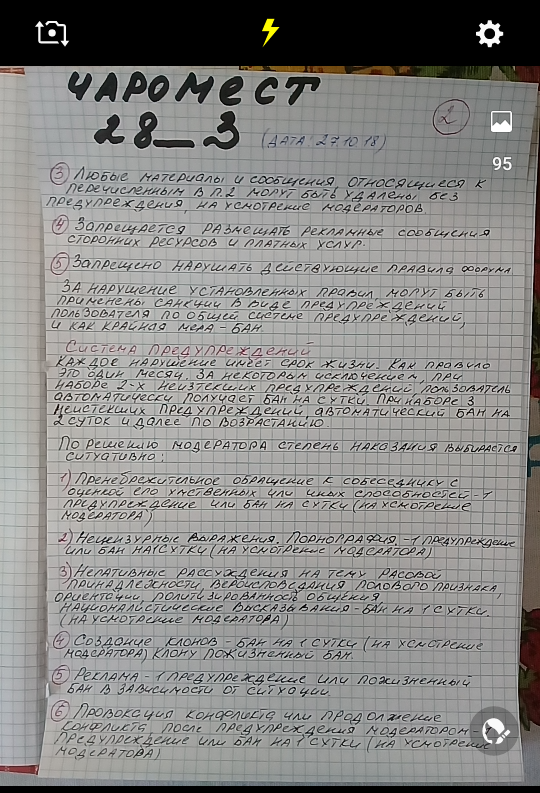 95
ЧАРОМЕСТ
28_3 (ДАТА: 27.10.18)
2
3 ЛЮБЫЕ МАТЕРИАЛЫ И СООБЩЕНИЯ ОТНОСЯЩИЕСЯ К
ПЕРЕЧИСЛЕННЫМ В П.2 МОГУТ БЫТЬ УДАЛЕНЫ БЕЗ
ПРЕДУПРЕЖДЕНИЯ, НА УСМОТРЕНИЕ МОДЕРАТОРОВ.
4 ЗАПРЕЩАЕТСЯ РАЗМЕЩАТЬ РЕКЛАМНЫЕ СООБЩЕНИЯ
СТОРОННИХ РЕСУРСОВ И ПЛАТНЫХ УСЛУГ.
5 ЗАПРЕЩЕНО НАРУШАТЬ ДЕЙСТВУЮЩИЕ ПРАВИЛА ФОРУМА
ЗА НАРУШЕНИЕ УСТАНОВЛЕННЫХ ПРАВИЛ, МОГУТ БЫТЬ
ПРИМЕНЕНЫ САНКЦИИ В ВИДЕ ПРЕДУПРЕЖДЕНИЙ
ПОЛЬЗОВАТЕЛЯ ПО ОБЩЕЙ СИСТЕМЕ ПРЕДУПРЕЖДЕНИЙ,
И КАК КРАЙНАЯ МЕРА - БАН.
СИСТЕМА ПРЕДУПРЕЖДЕНИЙ
КАЖДОЕ НАРУШЕНИЕ ИМЕЕТ СРОК ЖИЗНИ. КАК ПРАВИЛО
ЭТО ОДИН МЕСЯЦ, ЗА НЕКОТОРЫМ ИСКЛЮЧЕНИЕМ, ПРИ
НАБОРЕ 2-Х НЕИЗТЕКШИХ ПРЕДУПРЕЖДЕНИЙ, ПОЛЬЗОВАТЕЛЬ
АВТОМАТИЧЕСКИ ПОЛУЧАЕТ БАН НА СУТКИ. ПРИ НАБОРЕ 3
НЕИСТЕКШИХ ПРЕДУПРЕЖДЕНИЙ, АВТОМАТИЧЕСКИЙ БАН НА
2 СУТОК И ДАЛЕЕ ПО ВОЗРАСТАНИЮ.
ПО РЕШЕНИЮ МОДЕРАТОРА СТЕПЕНЬ НАКАЗАНИЯ ВЫБИРАЕТСЯ
СИТУАТИВНО:
1) ПРЕНЕБРЕЖИТЕЛЬНОЕ ОБРАЩЕНИЕ К СОБЕСЕДНИКУ С
ОЦЕНКОЙ ЕГО УМСТВЕННЫХ ИЛИ ИНЫХ СПОСОБНОСТЕЙ - 1
ПРЕДУПРЕЖДЕНИЕ ИЛИ БАН НА СУТКИ (НА УСМОТРЕНИЕ
МОДЕРАТОРА)
2) НЕЦИЗУРНЫЕ ВЫРАЖЕНИЯ. ПОРНОГРАФИЯ, - 1 ПРЕДУПРЕЖДЕНИЕ
ИЛИ БАН НА 1 СУТКИ (НА УСМОТРЕНИЕ МОДЕРАТОРА)
3) НЕГАТИВНЫЕ РАССУЖДЕНИЯ НА ТЕМУ РАСОВОЙ
ПРИНАДЛЕЖНОСТИ, ВЕРОИСПОВЕДАНИЯ ПОЛОВОГО ПРИЗНАКА,
ОРИЕНТАЦИИ, ПОЛИТИЗИРОВАННОСТЬ ОБЩЕНИЯ,
НАЦИОНАЛИСТИЧЕСКИЕ ВЫСКАЗЫВАНИЯ - БАН НА 1 СУТКИ.
(НА УСМОТРЕНИЕ МОДЕРАТОРА)
4 СОЗДАНИЕ КЛОНОВ - БАН НА 1 СУТКИ (НА УСМОТРЕНИЕ
МОДЕРАТОРА) КЛОНУ ПОЖИЗНЕННЫЙ БАН.
5 РЕКЛАМА - 1 ПРЕДУПРЕЖДЕНИЕ ИЛИ ПОЖИЗНЕННЫЙ
БАН В ЗАВИСИМОСТИ ОТ СИТУАЦИИ.
6 ПРОВОКАЦИЯ КОНФЛИКТА ИЛИ ПРОДОЛЖЕНИЕ
КОНФЛИКТА ПОСЛЕ ПРЕДУПРЕЖДЕНИЯ МОДЕРАТОРОМ - 1
ПРЕДУПРЕЖДЕНИЕ ИЛИ БАН НА 1 СУТКИ (НА УСМОТРЕНИЕ
МОДЕРАТОРА)